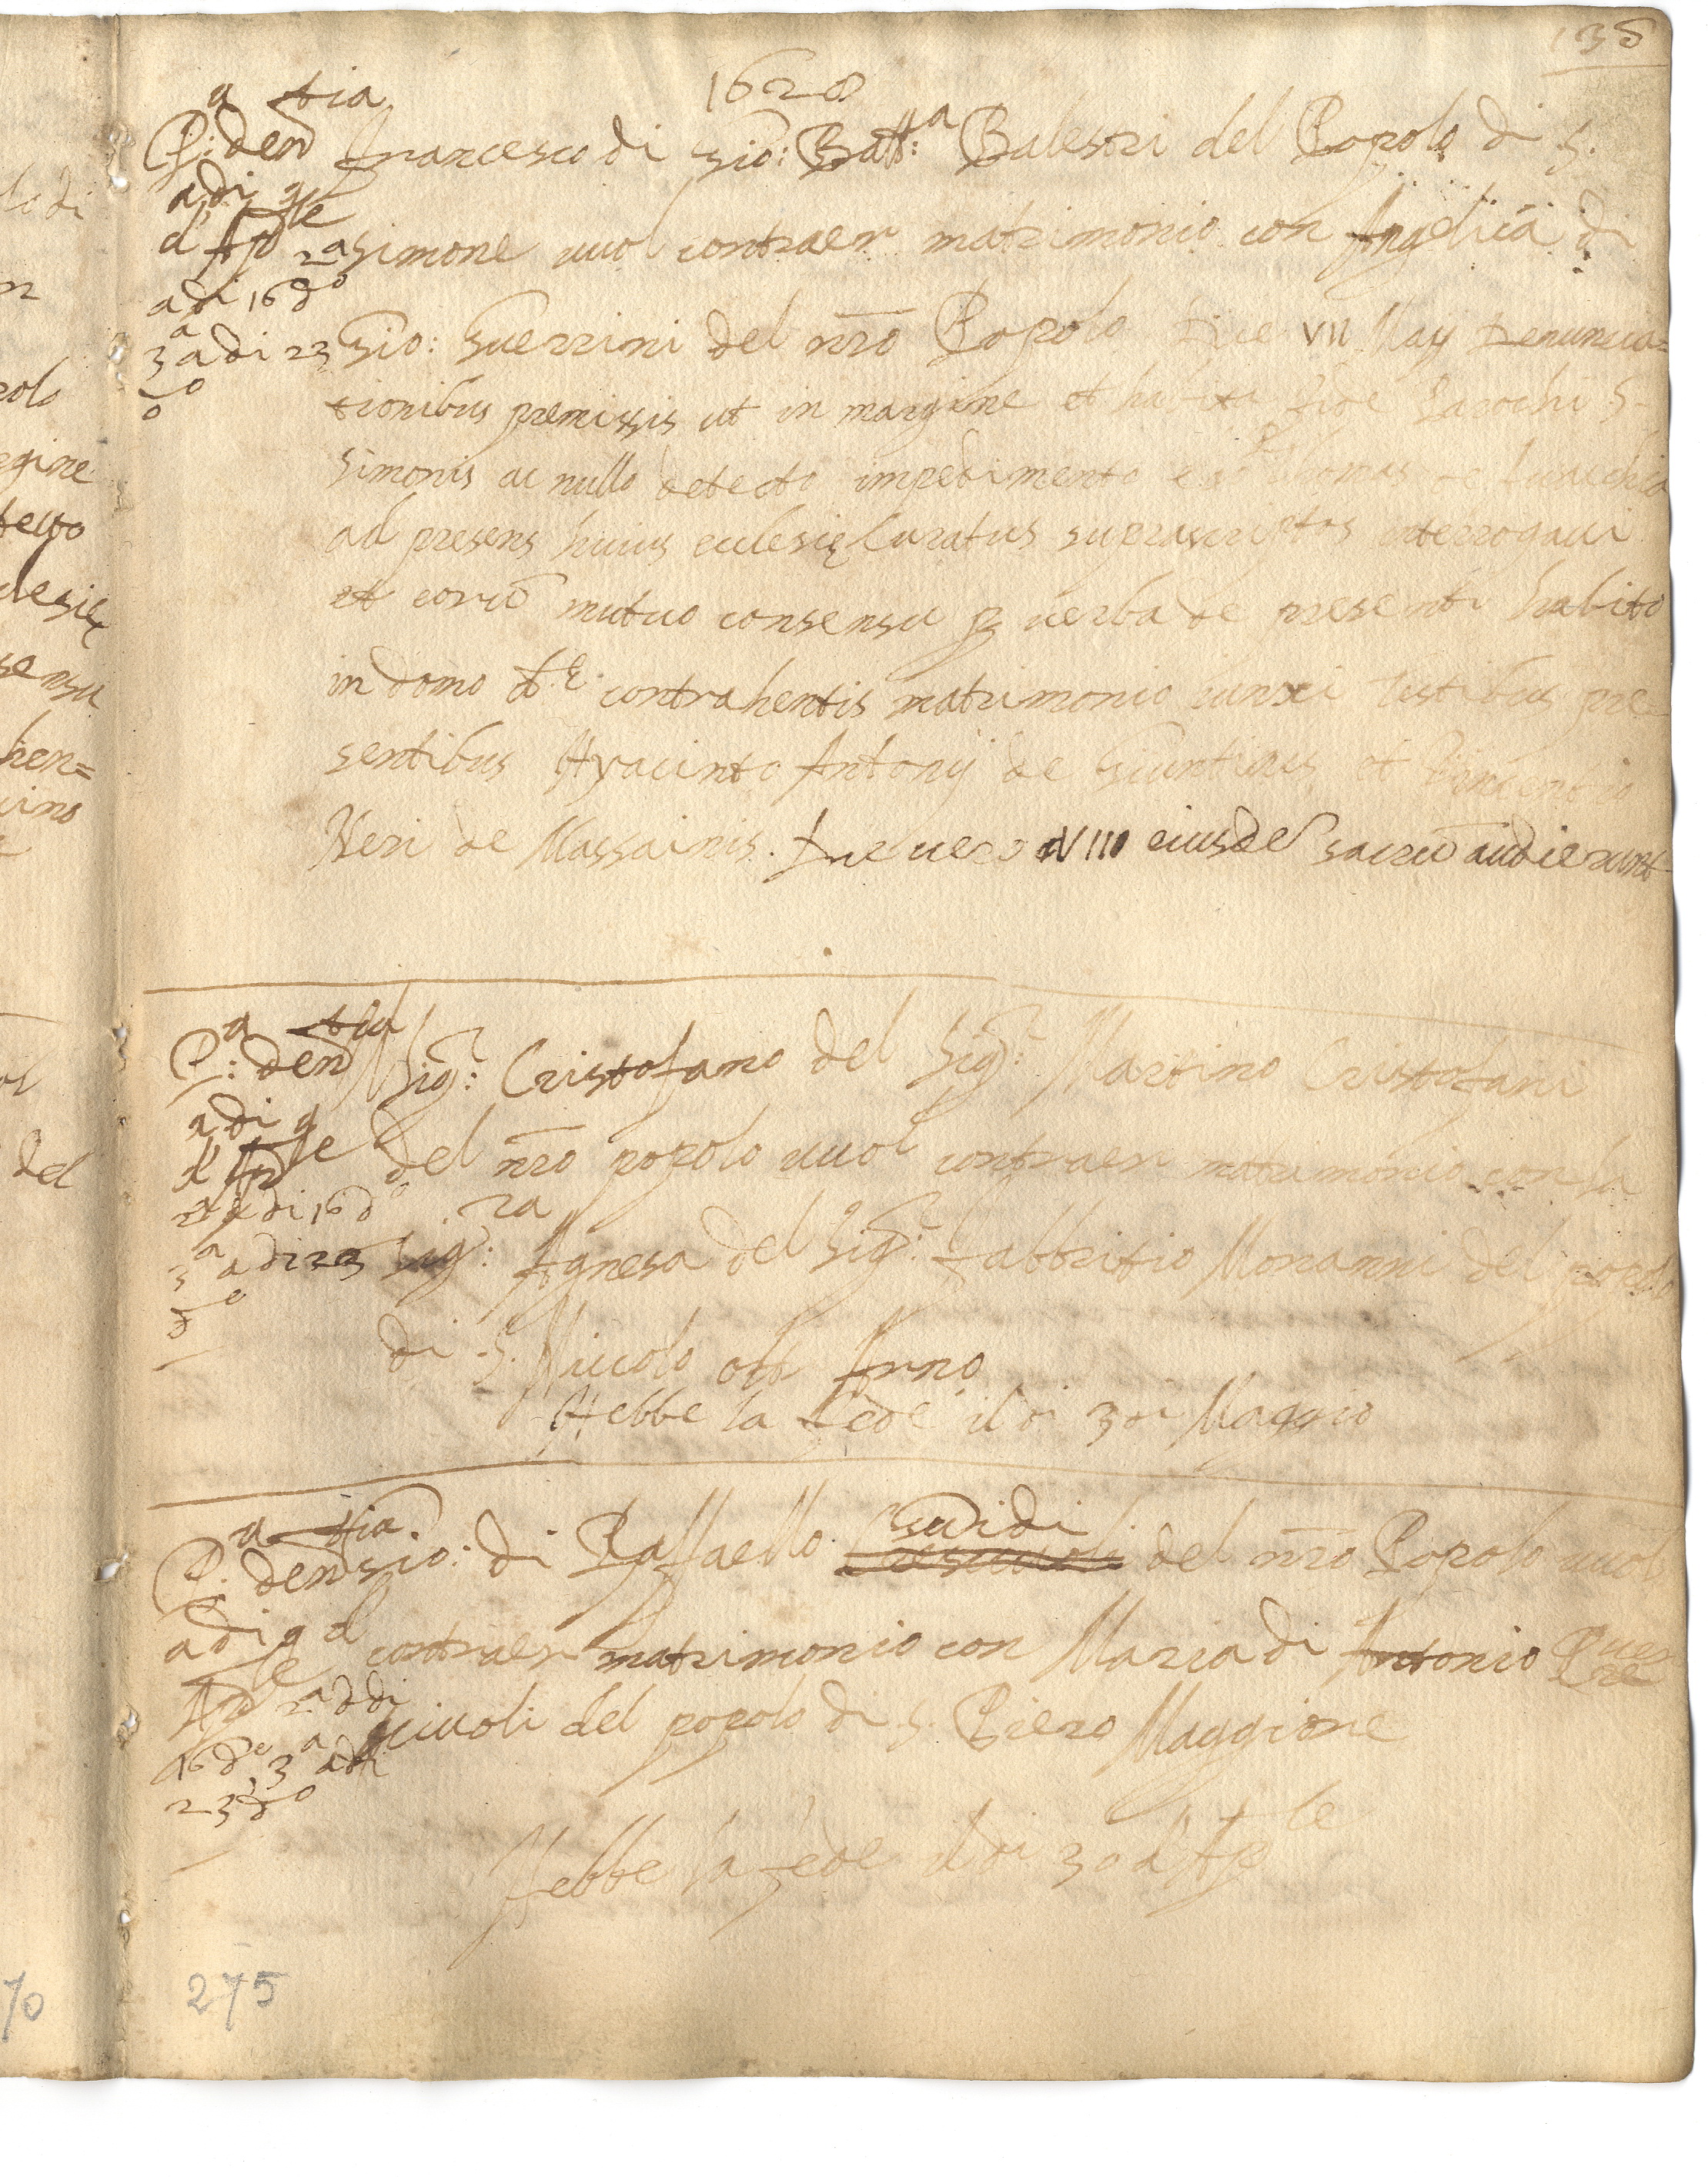 138
1628
P.a den.tia
adi 9
d'Ap.le 2a
adi 16 d.o
3a adi 23
d.o
Francesco di Gio: Batt:a Balestri del Popolo di S.
Simone vuol contraer matrimonio con Angelica di
Gio: Guerrini del nr̃o Popolo Die VII May Denuncia=
tionibus premissis ut in margine et habita fide Parochi S.
Simonis ac nullo detecto impedimento ego P. Thomas de
ad presens huius ecclesię Curatus suprascriptos interrogavi
et eorũ mutuo consensu ꝑ verba de presenti habito
in domo contrahentis matrimonio iunxi testibus pre
sentibus Hyacinto Antonij de Giuntinis et Vincentio
Neri de Massainis. Die vero VIII eiusdẽ sacrũ audierunt
P:a den.tia
adi 9
d'Ap.le
2a adi 16 d.o
3a adi 23
d.o
Il Sig.r: Cristofano del Sig.r: Martino Cristofani
del nr̃o popolo vuol contraer matrimonio con la
Sig.ra: Agnesa del Sig.r: Fabbritio Monanni del popolo
di S. Niccolo olt'Arno
Hebbe la fede il di 3 di Maggio
P.a den.tia
adi 9 d'
Ap.le 2.a adi
16 d.o 3a adi
23 d.o
Gio: di Raffaello Guidi del nr̃o Popolo vuol
contraer matrimonio con Maria di Antonio
sciuoli del popolo di S. Piero Maggiore
Hebbe la fede il di 30 d'Ap.le
275